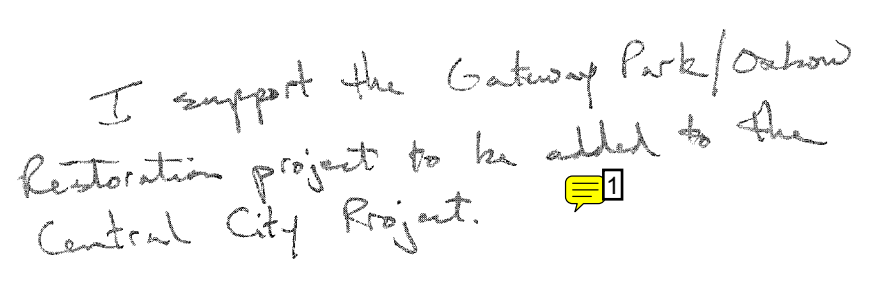 I support the Gateway Park/Oxbow
Restoration project to be added to the
Central City Project.
1